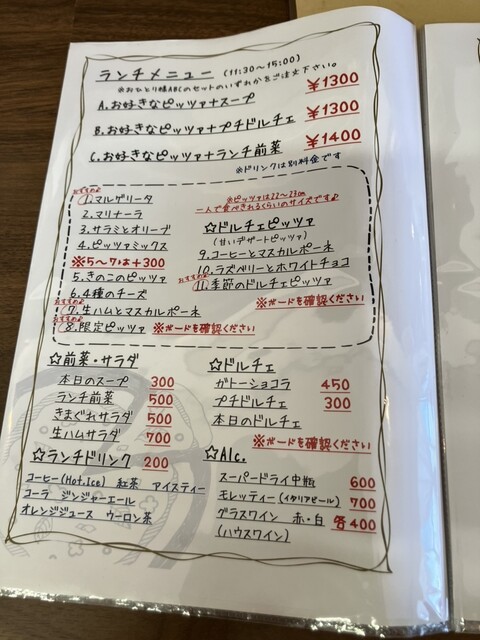 ランチメニュー (11:30〜15:00)
※おひとり様ABCのセットのいずれかをご注文下さい。
A.お好きなピッツァ+スープ ¥1300
B.お好きなピッツァ+プチドルチェ ¥1300
C.お好きなピッツァ+ランチ前菜 ¥1400
※ドリンクは別料金です
おすすめ♪
1.マルゲリータ
2.マリナーラ
3.サラミとオリーブ
4.ピッツァミックス
※5〜7は+300
5.きのこのピッツァ
6.4種のチーズ
おすすめ♪
7.生ハムとマスカルポーネ
おすすめ♪
8.限定ピッツァ ※ボードを確認ください
※ピッツァは22〜23cm
一人で食べきれるくらいのサイズです♪
☆ドルチェピッツァ
(甘いデザートピッツァ)
9.コーヒーとマスカルポーネ
10.ラズベリーとホワイトチョコ
おすすめ♪
11.季節のドルチェピッツァ
※ボードを確認ください
☆前菜・サラダ
本日のスープ 300
ランチ前菜 500
きまぐれサラダ 500
生ハムサラダ 700
☆ドルチェ
ガトーショコラ 450
プチドルチェ 300
本日のドルチェ
※ボードを確認ください
☆ランチドリンク 200
コーヒー(Hot.Ice) 紅茶 アイスティー
コーラ ジンジャーエール
オレンジジュース ウーロン茶
☆Alc.
スーパードライ中瓶 600
モレッティー(イタリアビール) 700
グラスワイン 赤・白 各400
(ハウスワイン)